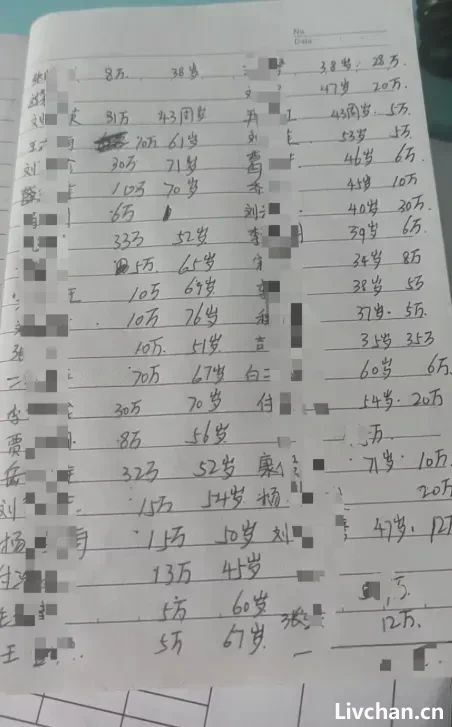 No.
Date
8万 38岁 38岁. 28万.
47岁 20万.
刘 31万 43周岁 43周岁. 5万.
王 70万 61岁 刘 53岁 5万
刘 30万 71岁 46岁 6万.
10万 70岁 45岁 10万
6万 刘 40岁 30万.
33万 52岁 李 39岁 6万.
5万. 65岁 宋 34岁 8万
10万 69岁 李 38岁 5万
10万 76岁 程 37岁. 5万.
张 10万. 51岁 吉 35岁 35万
70万 67岁 白二 60岁 6万.
李 30万 70岁 付 54岁. 20万
贾 8万 56岁 万.
岳 32万 52岁 康 71岁. 10万
刘 15万 54岁 杨 20万
杨 15万 50岁 刘 47岁. 12万
13万 45岁
5万 60岁 万.
王 5万 67岁 张 12万.
Livchan.cn